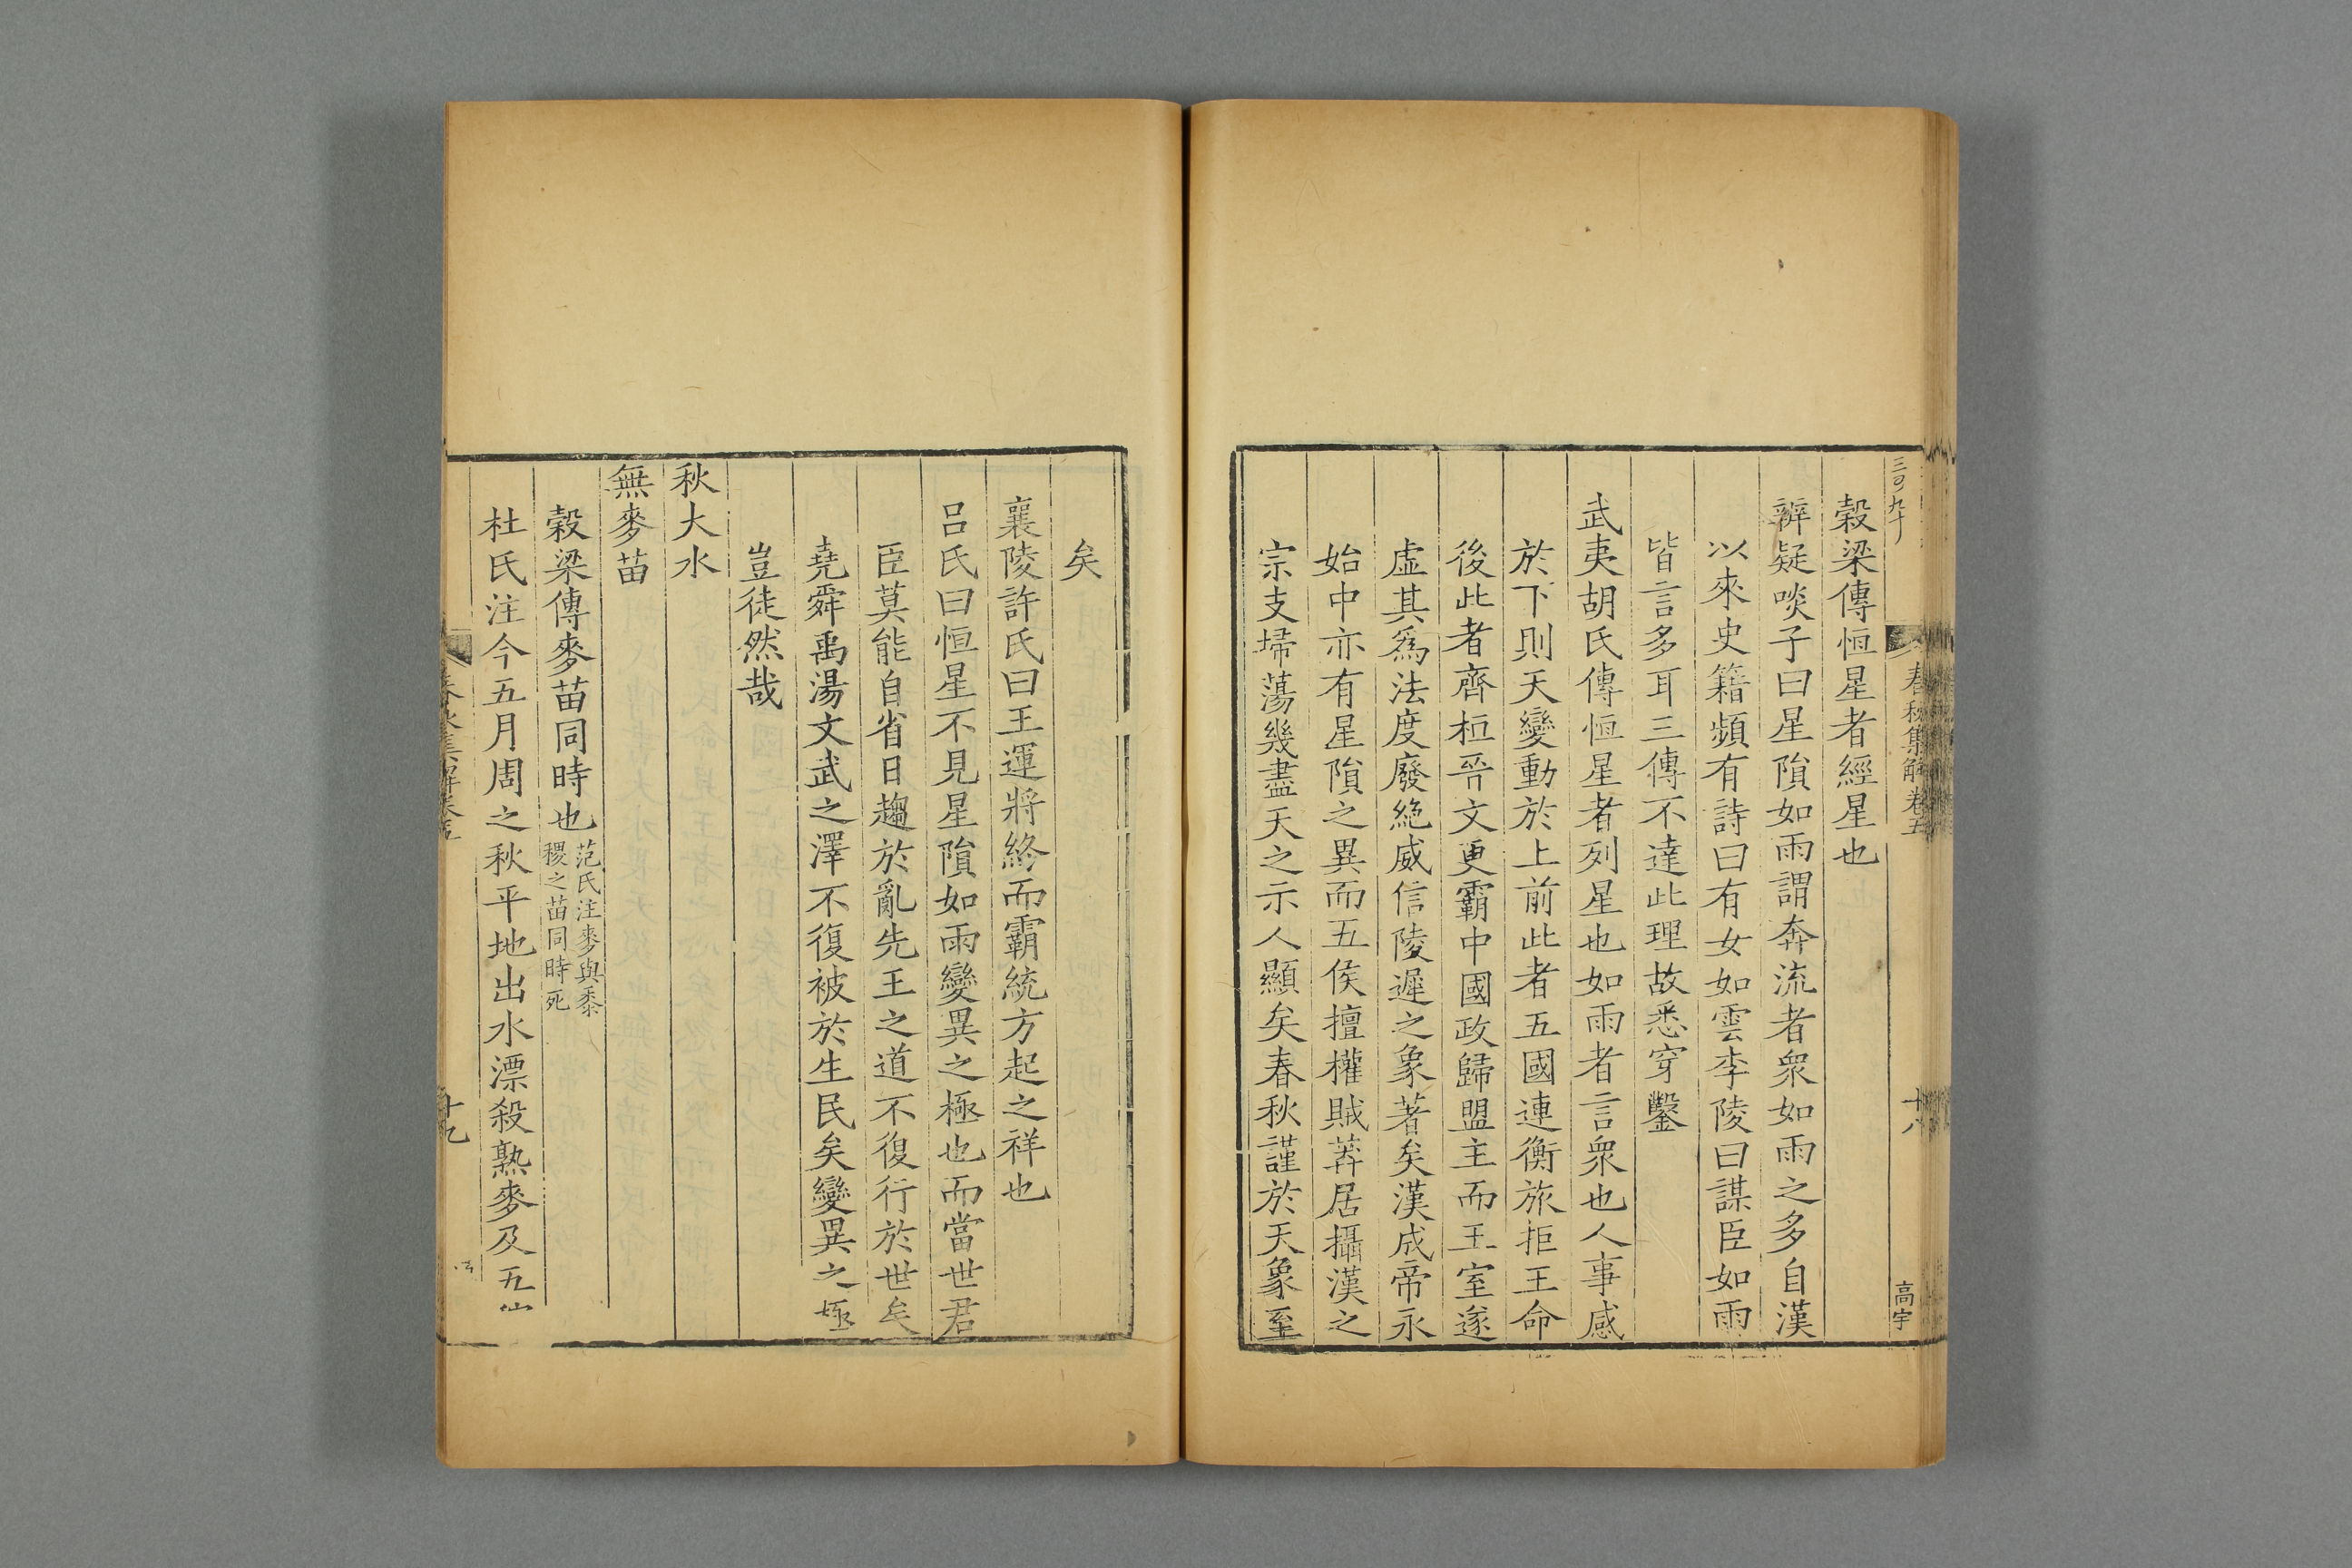 春秋集解卷五
十八
高宇
穀梁傳恒星者經星也
辨疑啖子曰星隕如雨謂奔流者衆如雨之多自漢
以來史籍頻有詩曰有女如雲李陵曰謀臣如雨
皆言多耳三傳不達此理故悉穿鑿
武夷胡氏傳恒星者列星也如雨者言衆也人事感
於下則天變動於上前此者五國連衡旅拒王命
後此者齊桓晉文更霸中國政歸盟主而王室遂
虛其爲法度廢絶威信陵遲之象著矣漢成帝永
始中亦有星隕之異而五侯擅權賊莽居攝漢之
宗支埽蕩幾盡天之示人顯矣春秋謹於天象至
矣
襄陵許氏曰王運將終而霸統方起之祥也
吕氏曰恒星不見星隕如雨變異之極也而當世君
臣莫能自省日趨於亂先王之道不復行於世矣
堯舜禹湯文武之澤不復被於生民矣變異之極
豈徒然哉
秋大水
無麥苗
穀梁傳麥苗同時也范氏注麥與黍
稷之苗同時死
杜氏注今五月周之秋平地出水漂殺熟麥及五
春秋集解卷五
十九